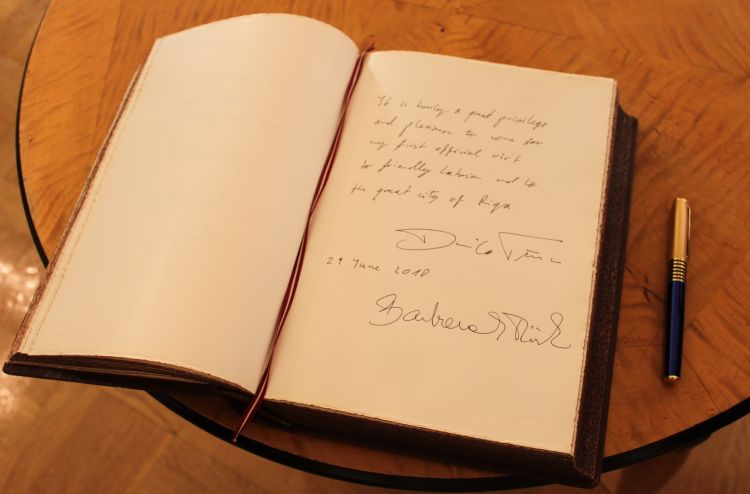 It is truly a great privilege
and pleasure to come for
my first official visit
to friendly Latvia and to
the great city of Riga.
Danilo Türk
29 June 2010
Barbara M. Türk